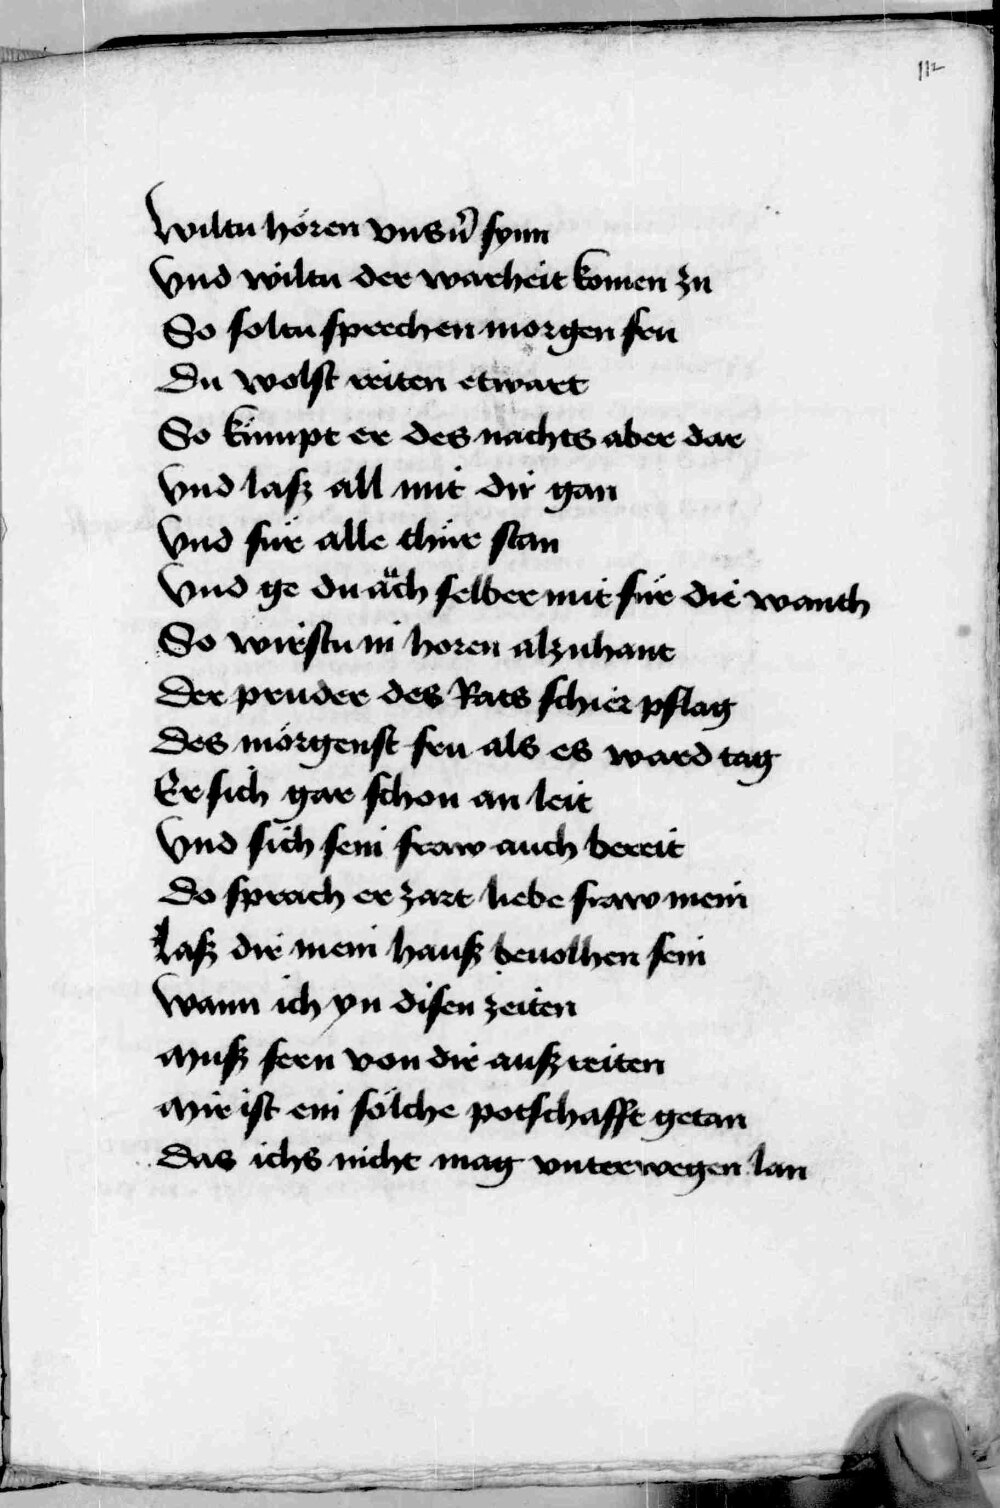 112
Wiltu hören vnsern̄ synn
Vnd wiltu der warheit komen zu
So soltu sprechen morgen fru
Du wolst reiten etwart
So kumpt er des nachts aber dar
Vnd lasz all mit dir gan
Vnd für alle thür stan
Vnd ge du äch selber mit für die wanth
So wirstu in horen alzuhant
Der pruder des Rats schier pflag
Des mörgenst fru als es ward tag
Er sich gar schon an leit
Vnd sich sein fraw auch bereit
Do sprach er zart liebe fraw mein
Lasz dir mein hausz beuolhen sein
Wann ich yn disen zeiten
Musz fern von dir ausz reiten
Mir ist ein sölche potschafft getan
Das ichs nicht mag vnterwegen lan